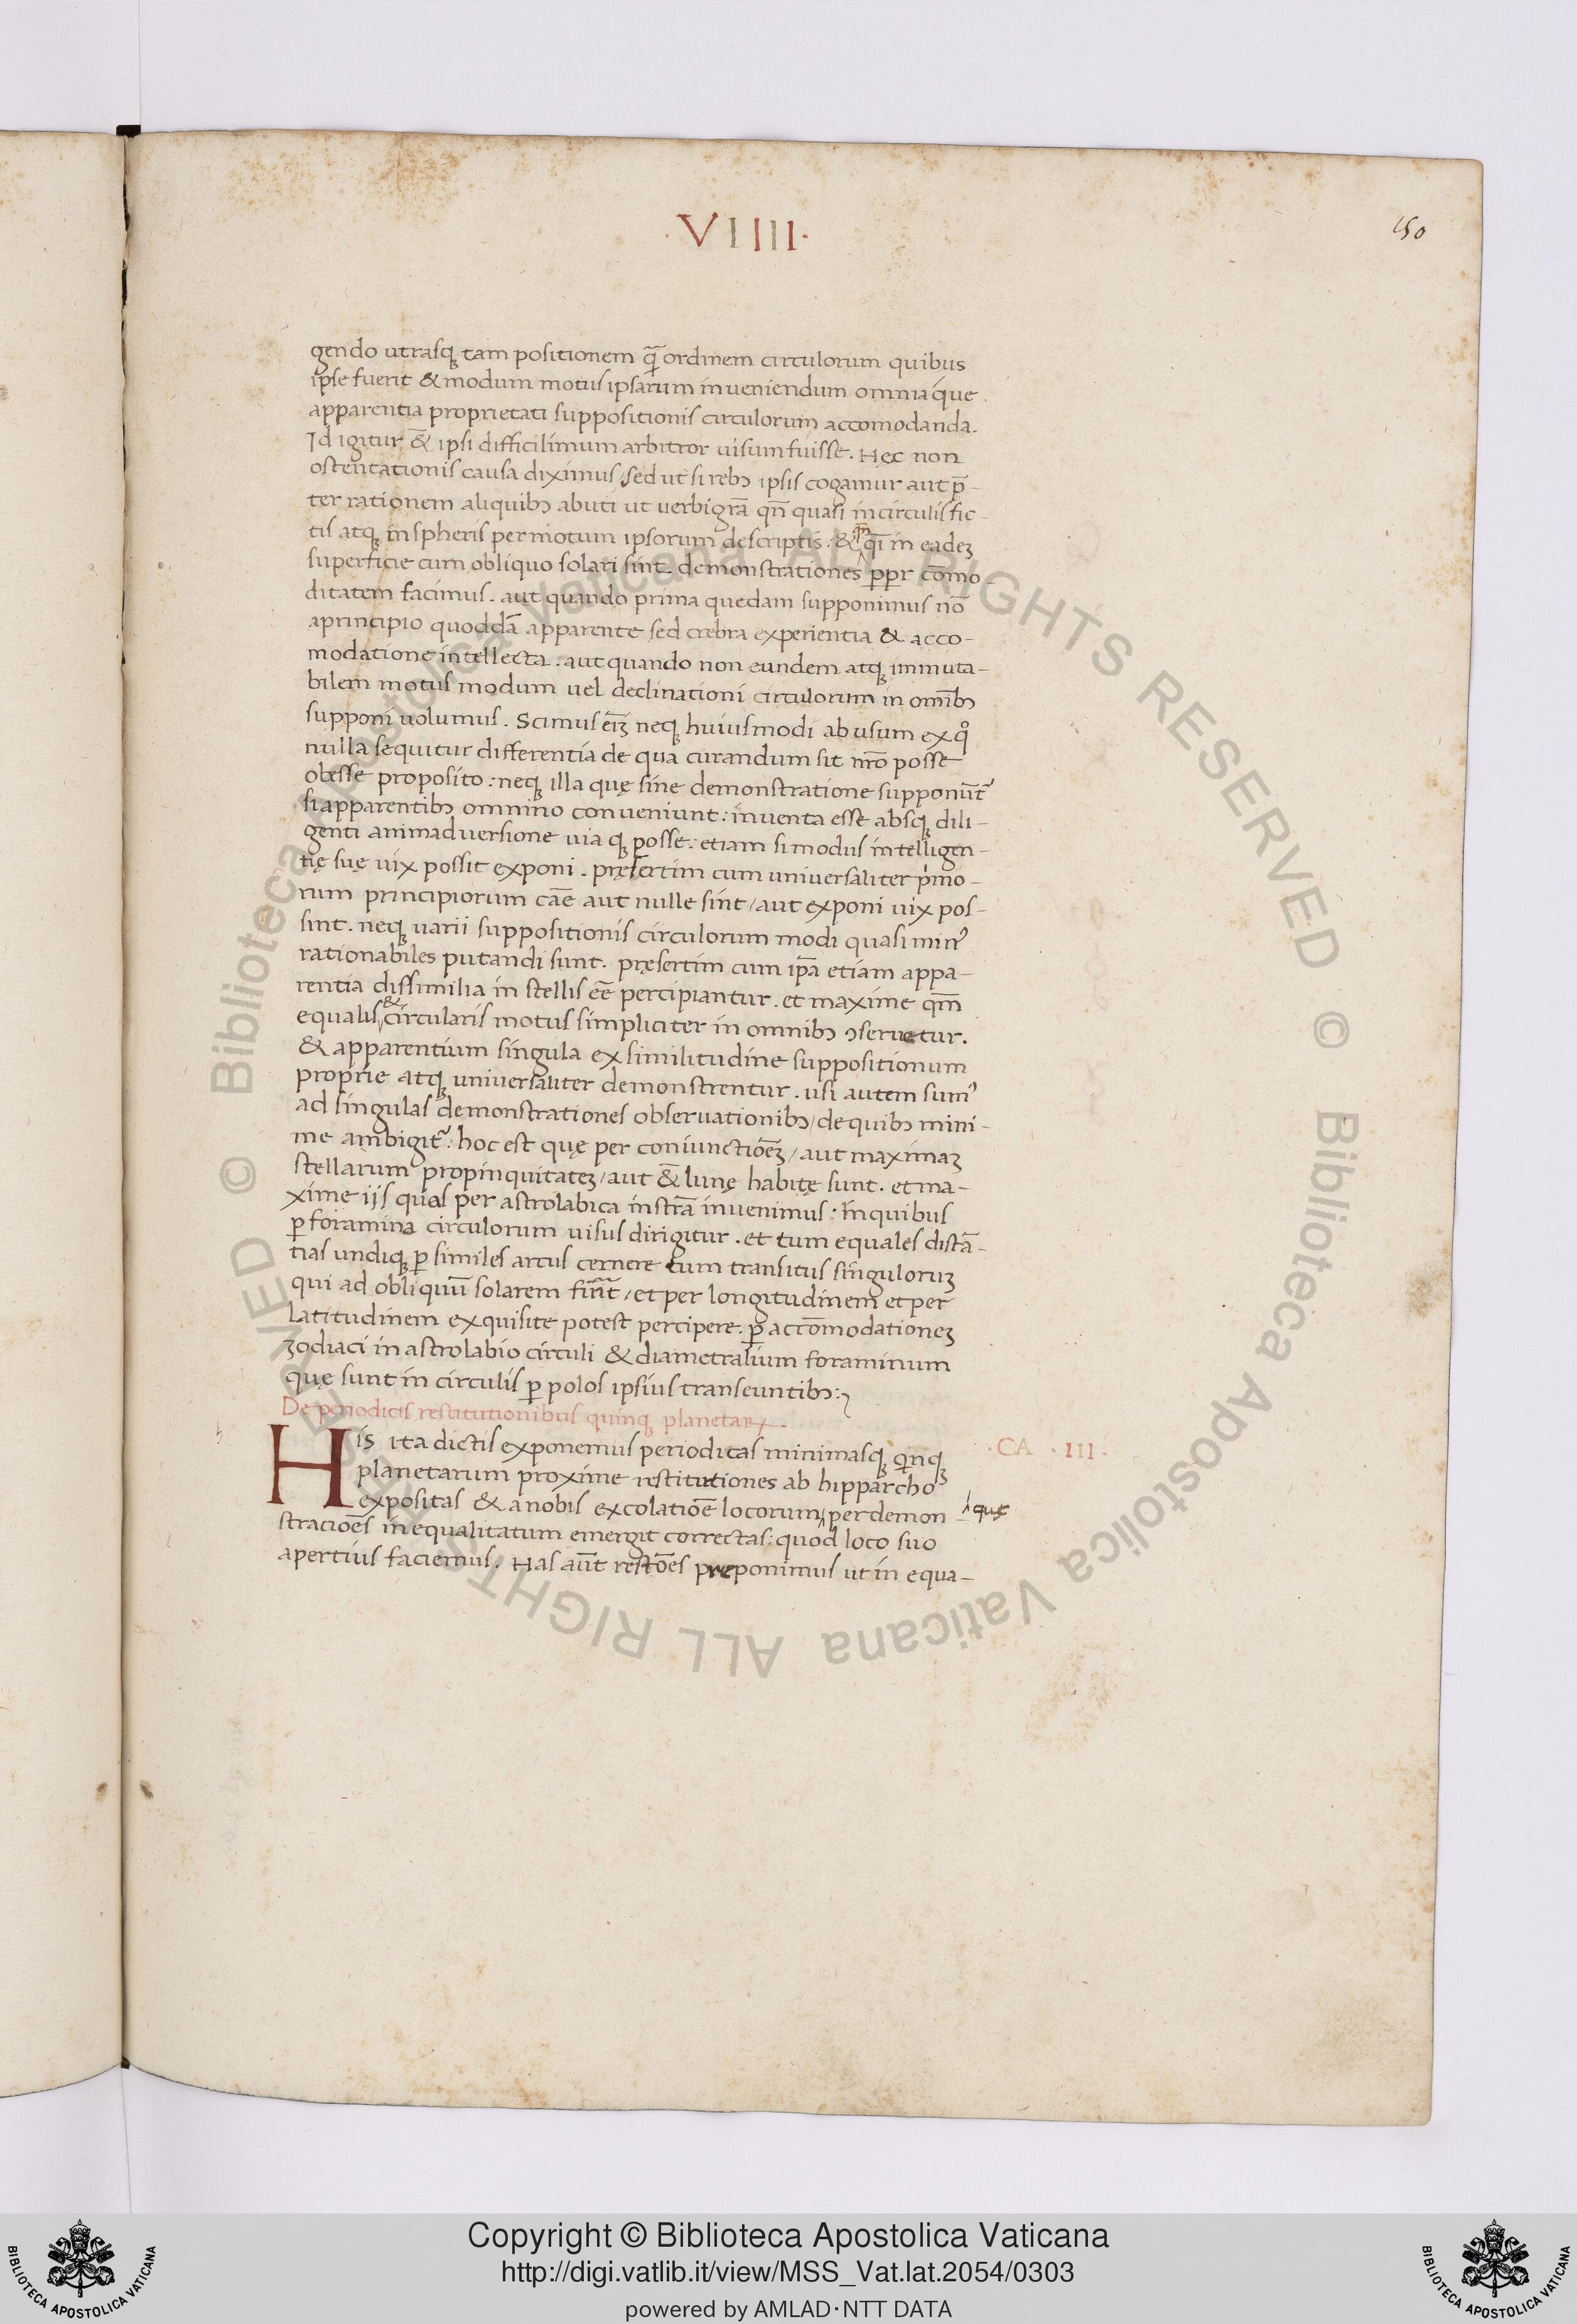 ·VIIII·
150
gendo utrasq̨ tam positionem q̄ ordinem circulorum quibus
ipse fuerit & modum motus ipsarum inueniendum omniaque
apparentia proprietati suppositionis circulorum accomodanda.
Id igitur &̄ ipsi difficilimum arbitror uisum fuisse. Hęc non
ostentationis causa diximus, sed ut si rebꝫ ipsis cogamur aut p̄-
ter rationem aliquibꝫ abuti ut uerbigrā qn̄ quasi in circulis fic-
tis atq̨ in spheris per motum ipsorum descriptis: & qm̄ q̄i in eadeꝫ
superficie cum obliquo solari sint. demonstrationes ꝓpr cōmo
ditatem facimus. aut quando prima quedam supponimus nō
aprincipio quoddā apparente sed crebra experientia & acco-
modatione intellecta. aut quando non eundem atq̨ immuta-
bilem motus modum uel declinationi circulorum in omībꝫ
supponi uolumus. Scimus eīꝫ neq̨ huiusmodi abusum ex qͦ
nulla sequitur differentia de qua curandum sit nr̄o posse
obesse proposito: neq̨ illa quę sine demonstratione supponūt᷑
si apparentibꝫ omnino conueniunt: inuenta esse absq̨ dili-
genti animaduersione uia q̨ posse: etiam si modus intelligen-
tię suę uix possit exponi. pręsertim cum uniuersaliter pͥmo-
rum principiorum cāe aut nulle sint/aut exponi uix pos-
sint. neq̨ uarii suppositionis circulorum modi quasi minꝰ
rationabiles putandi sunt. pręsertim cum ip̄a etiam appa-
rentia dissimilia in stellis eē percipiantur. et maxime qm̄
equalis & circularis motus simpliciter in omnibꝫ ꝯseruetur.
& apparentium singula ex similitudine suppositionum
proprie atq̨ uniuersaliter demonstrentur. usi autem sumꝰ
ad singulas demonstrationes obseruationibꝫ/de quibꝫ mini-
me ambigit᷑: hoc est quę per coniunctiōeꝫ/aut maximaꝫ
stellarum propinquitateꝫ/aut &̄ lunę habitę sunt. et ma-
xime ijs quas per astrolabica instrā inuenimus: In quibus
ꝑ foramina circulorum uisus dirigitur. et tum equales distā-
tias undiq̨ ꝑ similes arcus cernere tum transitus singuloruꝫ
qui ad obliquū solarem fiūt/et per longitudinem et per
latitudinem exquisite potest percipere. ꝑ accōmodationeꝫ
zodiaci in astrolabio circuli & diametralium foraminum
quę sunt in circulis ꝑ polos ipsius transeuntibꝫ:
De periodicis restitutionibus quinq̨ planetaꝝ.
·CA ·III·
His ita dictis exponemus periodicas minimasq̨ qͥnq̨
planetarum proxime restitutiones ab hipparcho
expositas & a nobis excolatiōe locorum quę per demon
stratiōes inequalitatum emergit correctas: quod loco suo
apertius faciemus. Has aūt restōes preponimus ut in equa-
Copyright © Biblioteca Apostolica Vaticana
http://digi.vatlib.it/view/MSS_Vat.lat.2054/0303
powered by AMLAD·NTT DATA